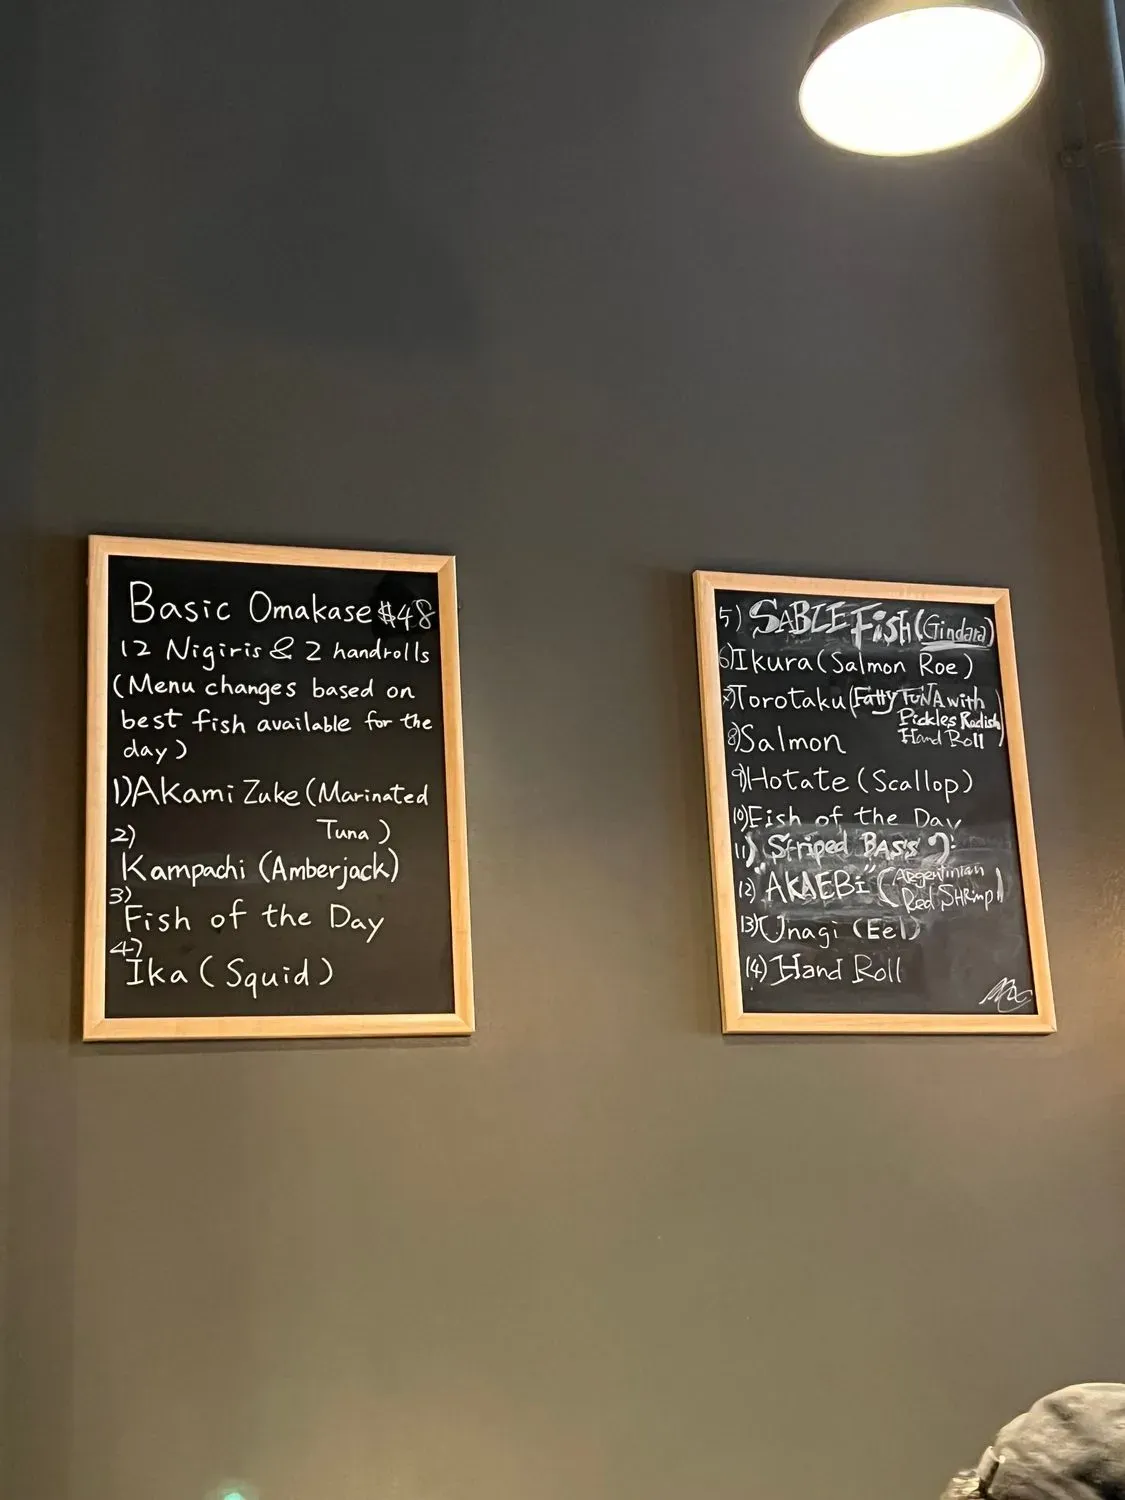 Basic Omakase $48
12 Nigiris & 2 handrolls
(Menu changes based on
best fish available for the
day)
1) Akami Zuke (Marinated
Tuna)
2)
Kampachi (Amberjack)
3)
Fish of the Day
4)
Ika (Squid)
5) SABLE FISH (Gindara)
6) Ikura (Salmon Roe)
7) Torotaku (Fatty TUNA with
Pickles Radish
Hand Roll)
8) Salmon
9) Hotate (Scallop)
10) Fish of the Day
11) Striped BASS
12) "AKAEBi" (Argentinian
Red SHRimp)
13) Unagi (Eel)
14) Hand Roll